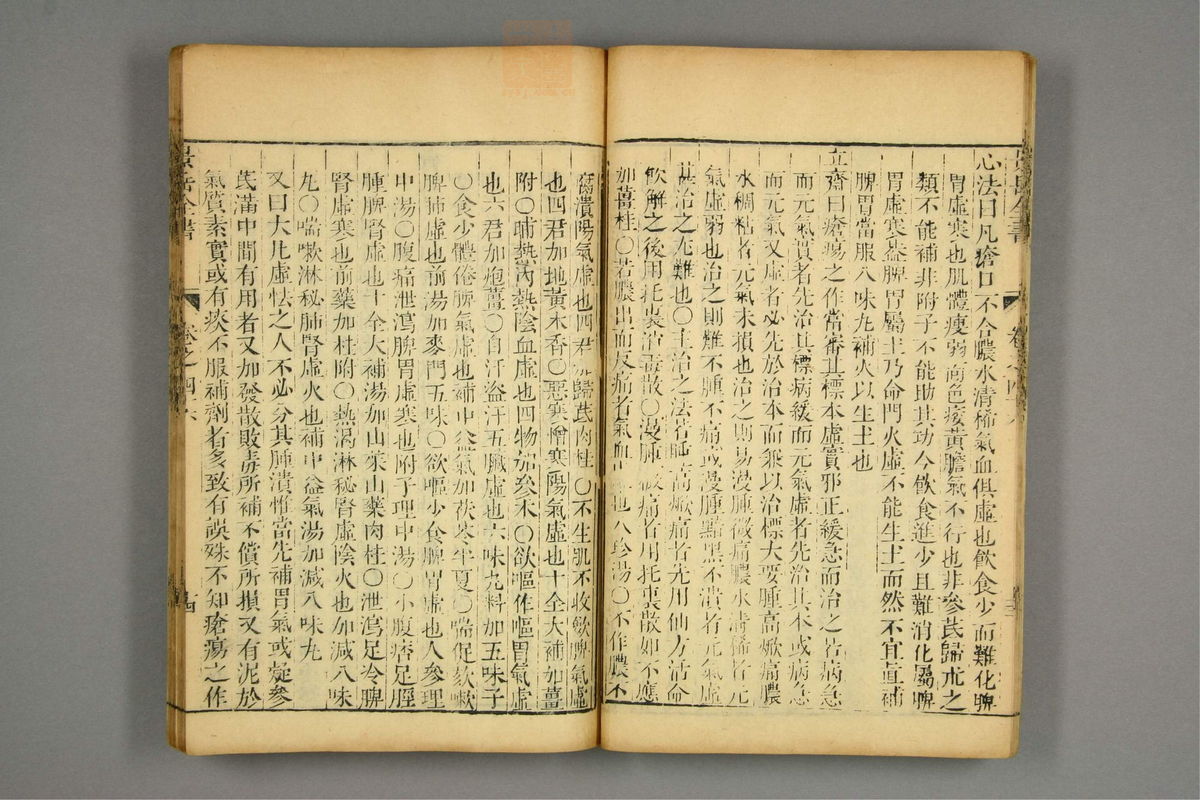 心法曰凡瘡口不合膿水清稀氣血俱虛也飲食少而難化脾
胃虛寒也肌體瘦弱面色痿黃膽氣不行也非參芪歸朮之
類不能補非附子不能助其功今飲食進少且難消化屬脾
胃虛寒盖脾胃屬土乃命門火虛不能生土而然不宜直補
脾胃當服八味丸補火以生土也
立齋曰瘡瘍之作當審其標本虛實邪正緩急而治之若病急
而元氣實者先治其標病緩而元氣虛者先治其本或病急
而元氣又虛者必先於治本而兼以治標大要腫高焮痛膿
水稠粘者元氣未損也治之則易漫腫微痛膿水清稀者元
氣虛弱也治之則難不腫不痛或漫腫黯黑不潰者元氣虛
甚治之尤難也○主治之法若腫高焮痛者先用仙方活命
飲解之後用托裏消毒散○漫腫微痛者用托裏散如不應
加薑桂○若膿出而反痛者氣血 也八珍湯○不作膿不
腐潰陽氣虛也四君 歸芪肉桂○不生肌不收斂脾氣虛
也四君加地黃木香○惡寒憎寒陽氣虛也十全大補加薑
附○晡熱內熱陰血虛也四物加參朮○欲嘔作嘔胃氣虛
也六君加炮薑○自汗盗汗五臟虛也六味丸料加五味子
○食少體倦脾氣虛也補中益氣加茯苓半夏○喘促欬嗽
脾肺虛也前湯加麥門五味○欲嘔少食脾胃虛也人參理
中湯○腹痛泄瀉脾胃虛寒也附子理中湯○小腹痞足脛
腫脾腎虛也十全大補湯加山茱山藥肉桂○泄瀉足冷脾
腎虛寒也前藥加桂附○熱渴淋秘腎虛陰火也加減八味
丸○喘嗽淋秘肺腎虛火也補中益氣湯加減八味丸
又曰大凡虛怯之人不必分其腫潰惟當先補胃氣或疑參
芪滿中間有用者又加發散敗毒所補不償所損又有泥於
氣質素實或有痰不服補劑者多致有誤殊不知瘡瘍之作
卷之四六